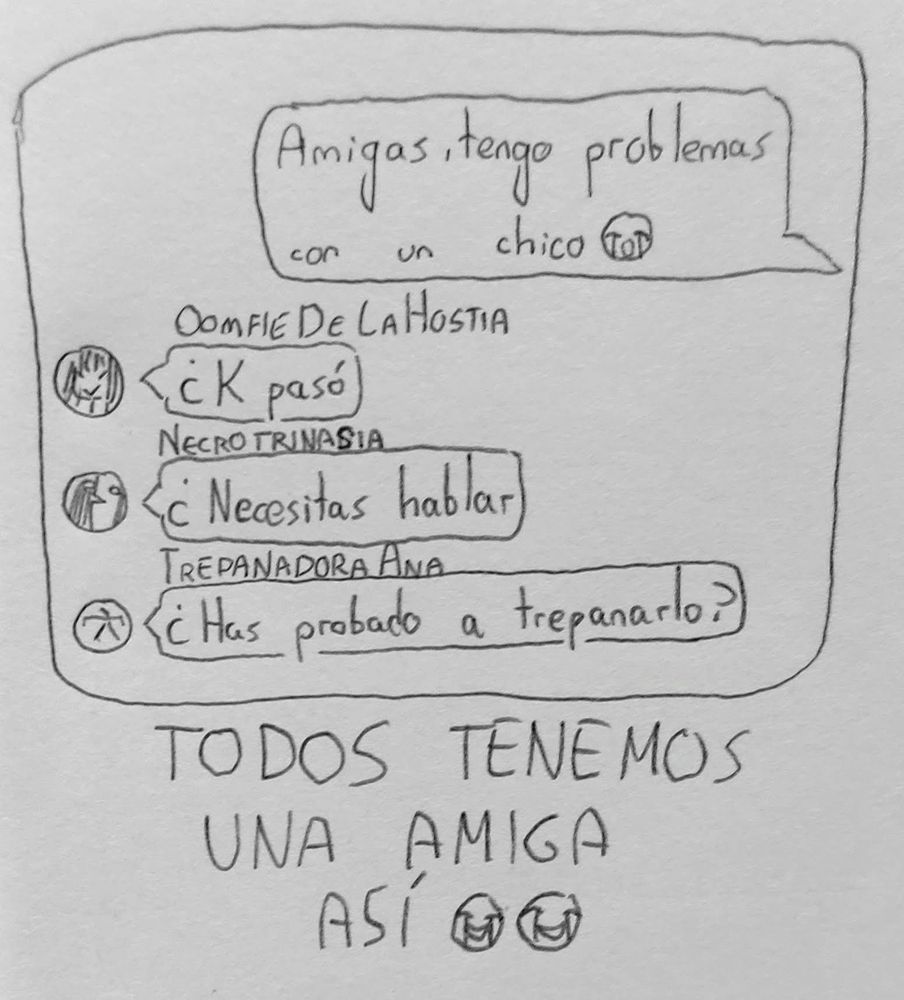 Amigas, tengo problemas
con un chico
OOMFIE DE LA HOSTIA
¿K pasó
NECROTRINASIA
¿Necesitas hablar
TREPANADORA ANA
¿Has probado a trepanarlo?
TODOS TENEMOS
UNA AMIGA
ASÍ